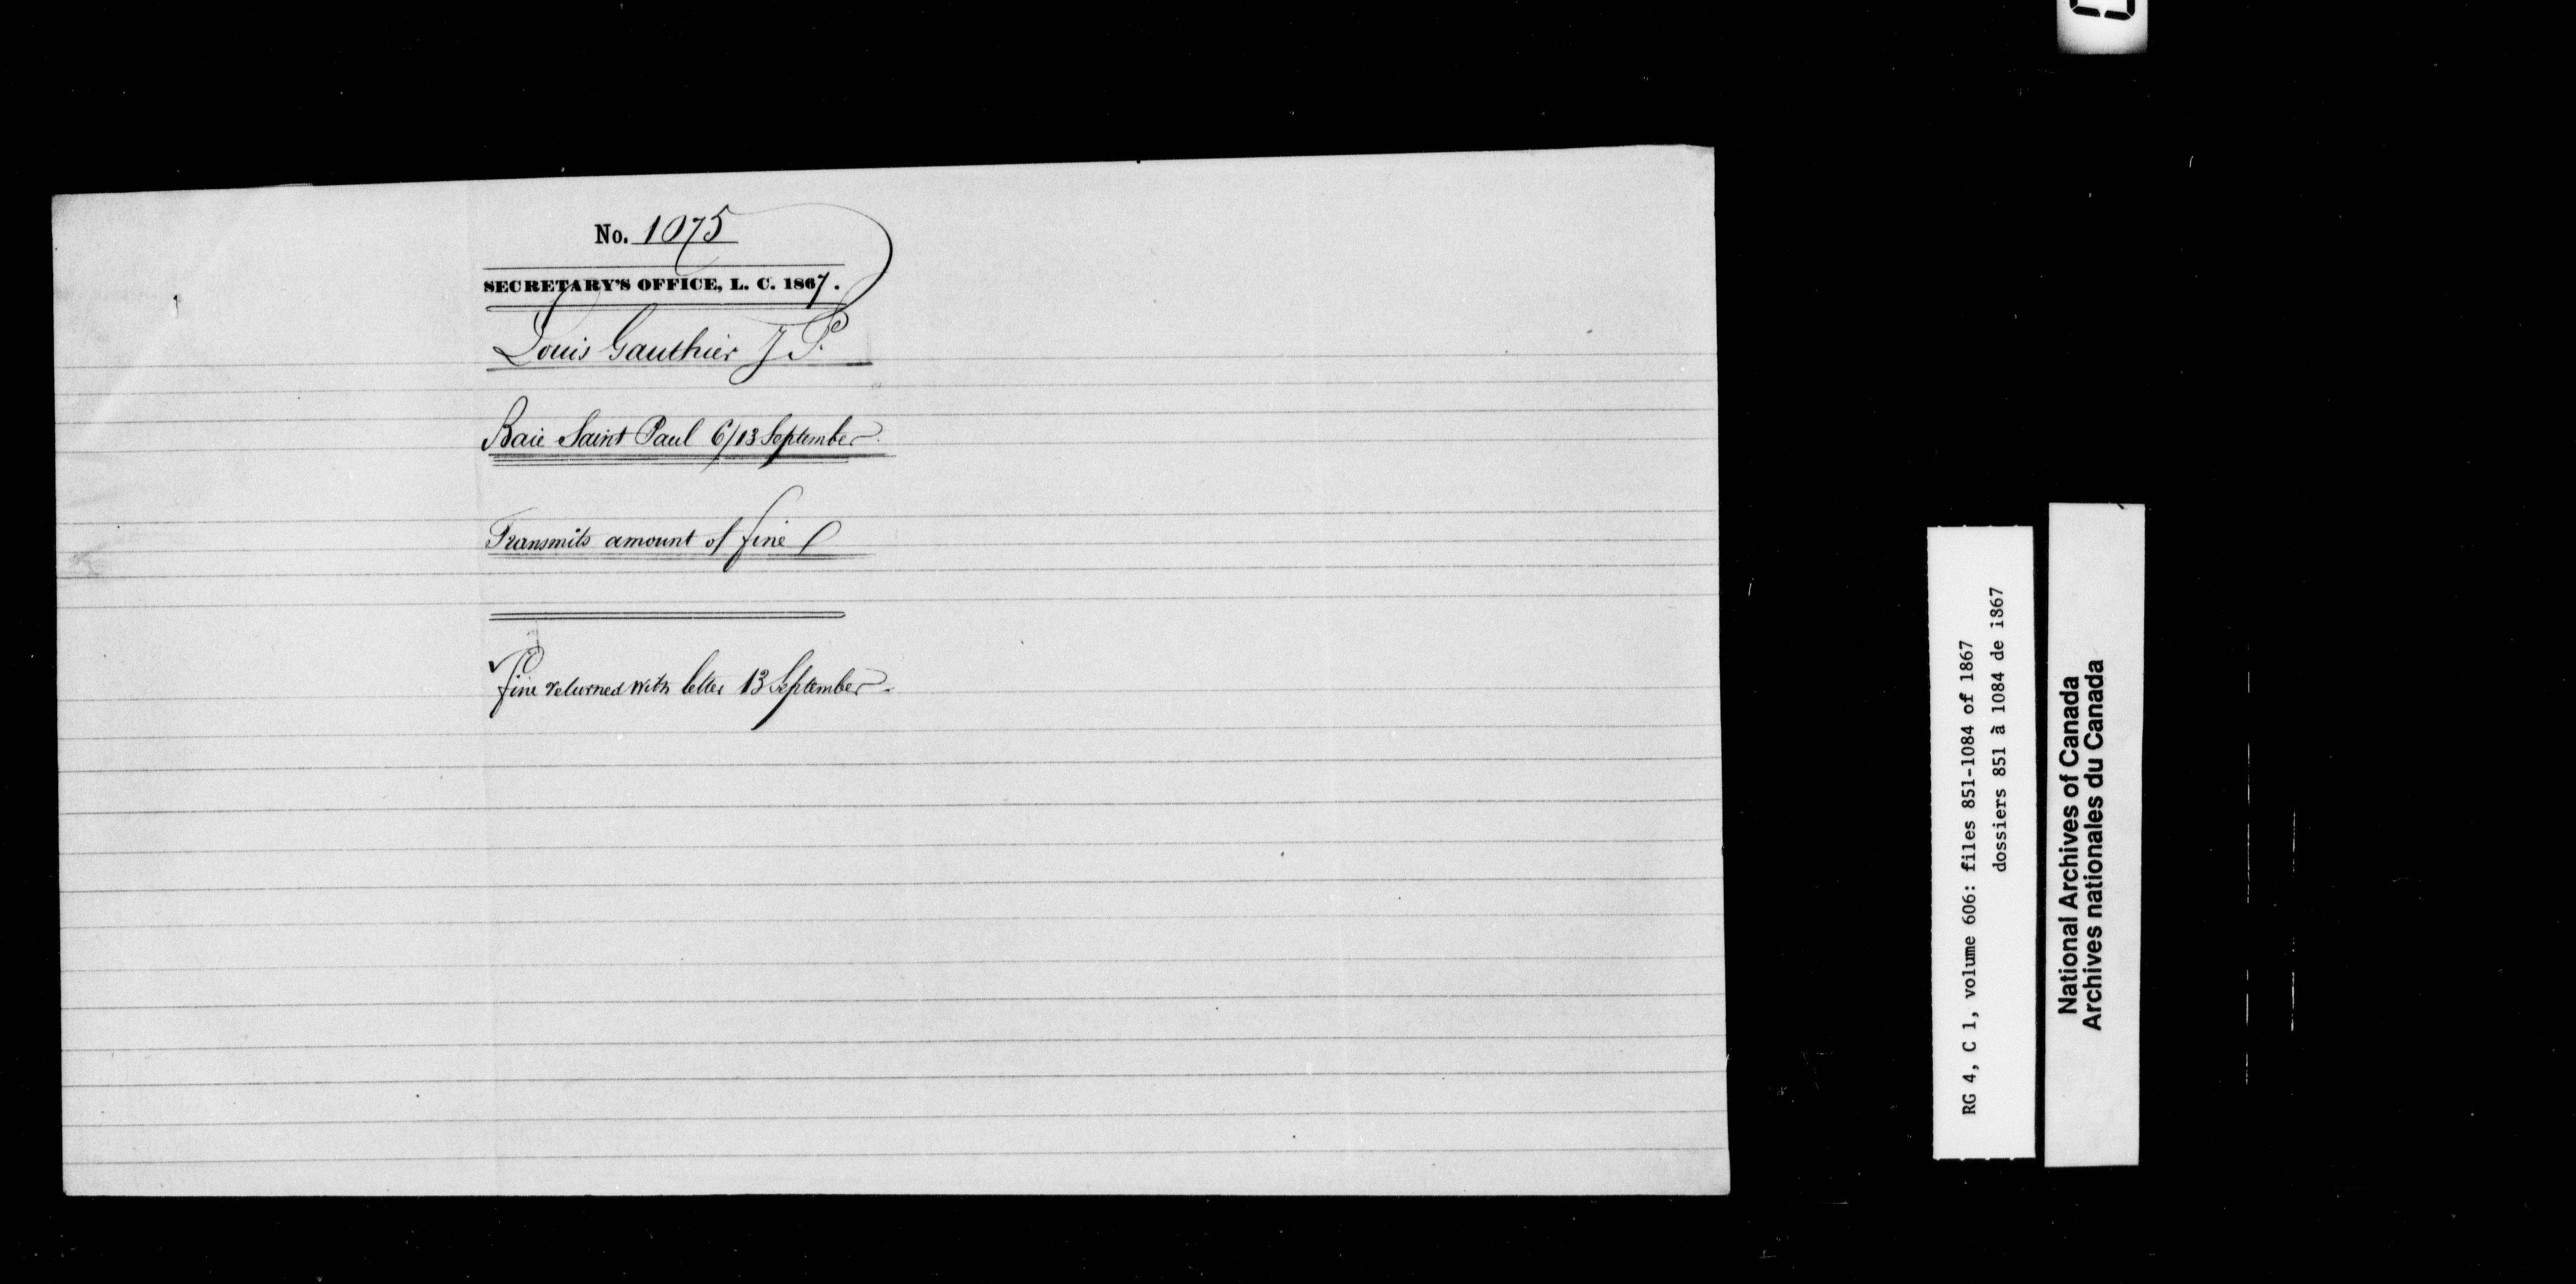 No. 1075
SECRETARY'S OFFICE, L. C. 1867.
Louis Gauthier J P.
Baie Saint Paul 6/13 September
Transmits amount of fine
fine returned with letter 13 September
RG 4, C 1, volume 606: files 851-1084 of 1867
dossiers 851 à 1084 de 1867
National Archives of Canada
Archives nationales du Canada